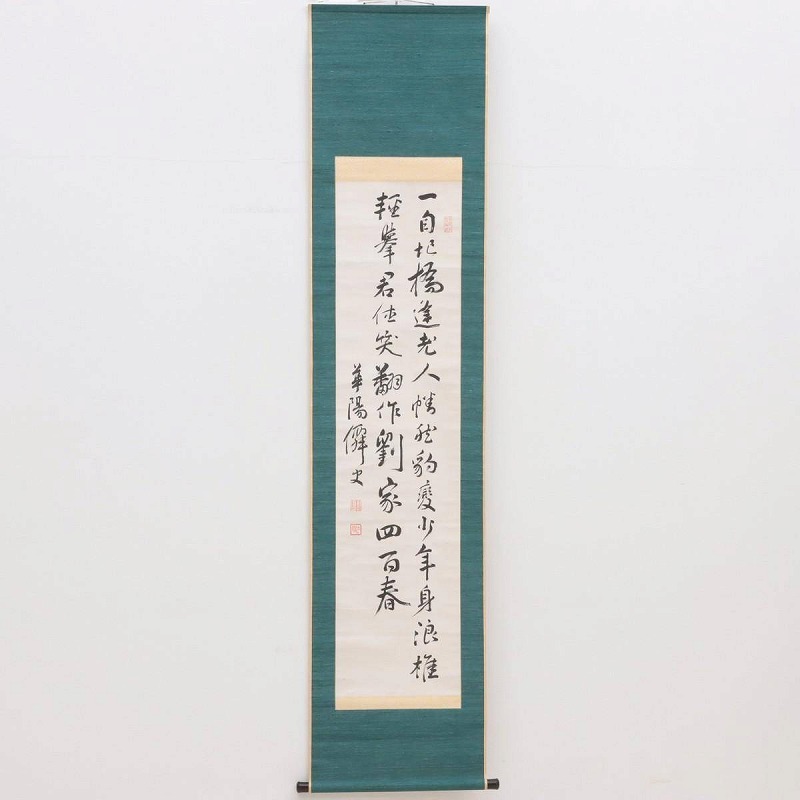 一自圯橋逢老人幡然豹變少年身浪椎
輕擧君休笑翻作劉家四百春
華陽僻史